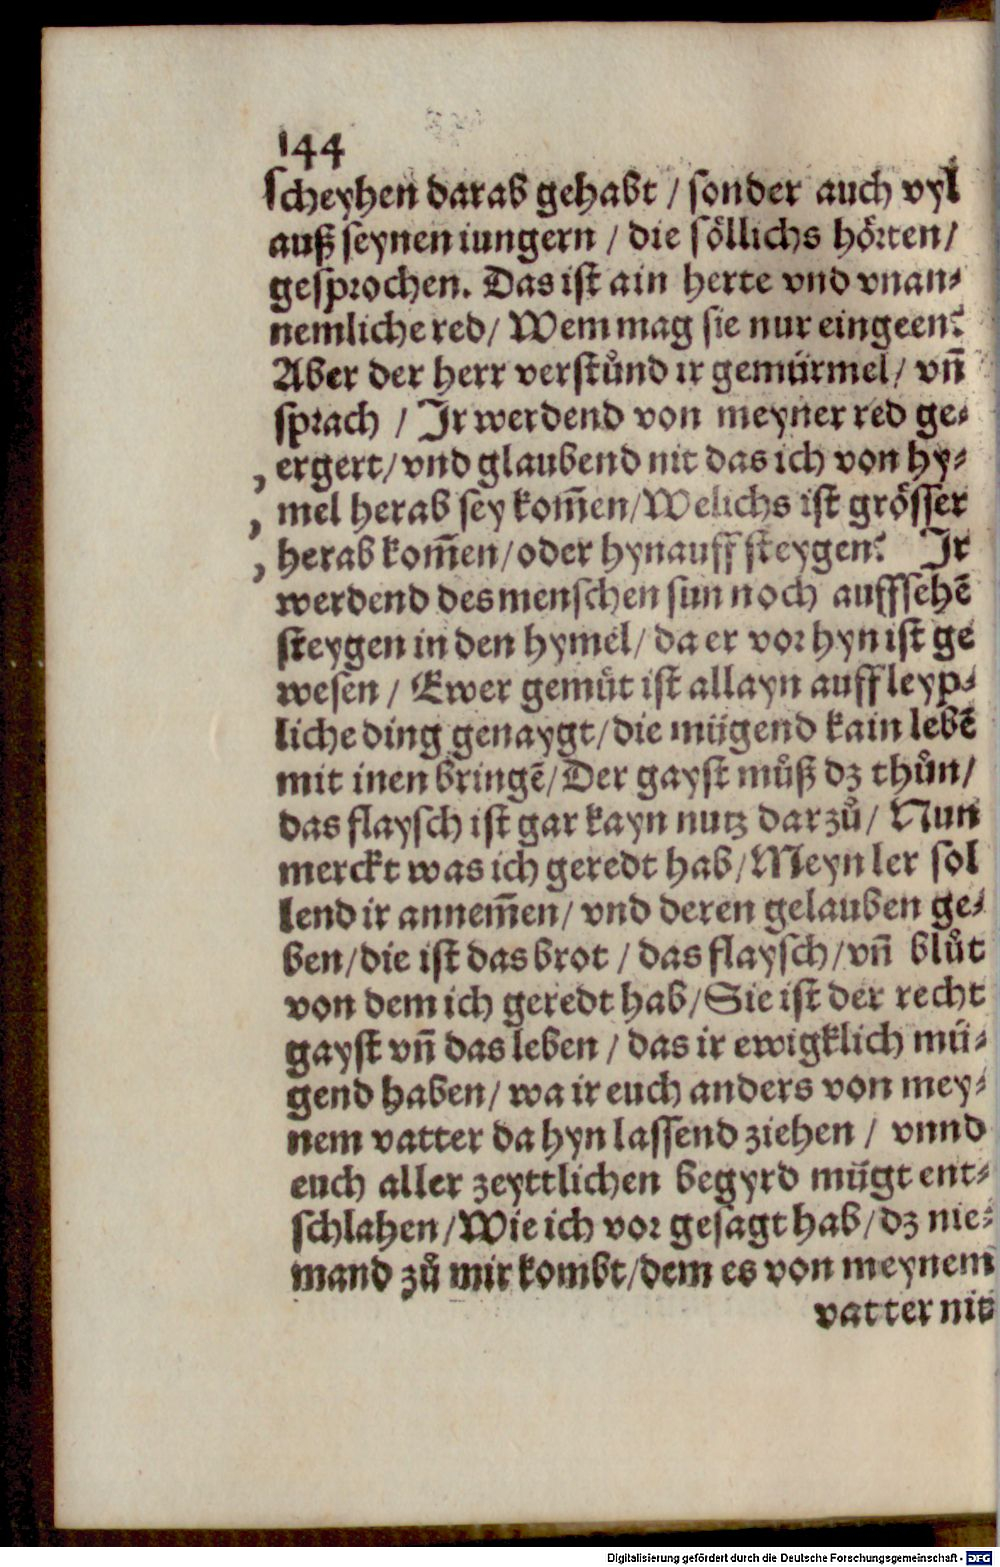 144
scheyhen darab gehabt / sonder auch vyl
auß seynen iungern / die söllichs hörten /
gesprochen. Das ist ain herte vnd vnan⸗
nemliche red / Wem mag sie nur eingeen?
Aber der herr verstůnd ir gemürmel / vñ
sprach / Ir werdend von meyner red ge⸗
, ergert / vnd glaubend nit das ich von hy⸗
, mel herab sey kom̄en / Welichs ist grösser
, herab kom̄en / oder hynauff steygen? Ir
werdend des menschen sun noch auffsehē
steygen in den hymel / da er vor hyn ist ge
wesen / Ewer gemüt ist allayn auff leyp⸗
liche ding genaygt / die mügend kain lebē
mit inen bringē / Der gayst můß dz thůn /
das flaysch ist gar kayn nutz darzů / Nun
merckt was ich geredt hab / Meyn ler sol
lend ir annem̄en / vnd deren gelauben ge⸗
ben / die ist das brot / das flaysch / vñ blůt
von dem ich geredt hab / Sie ist der recht
gayst vñ das leben / das ir ewigklich mü⸗
gend haben / wa ir euch anders von mey⸗
nem vatter da hyn lassend ziehen / vnnd
euch aller zeyttlichen begyrd mügt ent⸗
schlahen / Wie ich vor gesagt hab / dz nie⸗
mand zů mir kombt / dem es von meynem
vatter nit
Digitalisierung gefördert durch die Deutsche Forschungsgemeinschaft - DFG